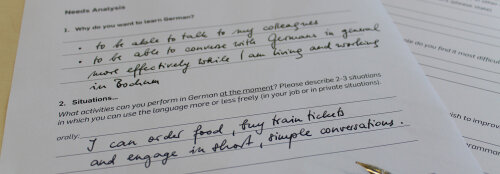 Needs Analysis
1. Why do you want to learn German?
• to be able to talk to my colleagues
• to be able to converse with Germans in general
more effectively while I am living and working
in Bochum
2. Situations...
What activities can you perform in German at the moment? Please describe 2-3 situations
in which you can use the language more or less freely (in your job or in private situations).
orally:
I can order food, buy train tickets
and engage in short, simple conversations.
do you find it most difficult
ish to improv
rammar